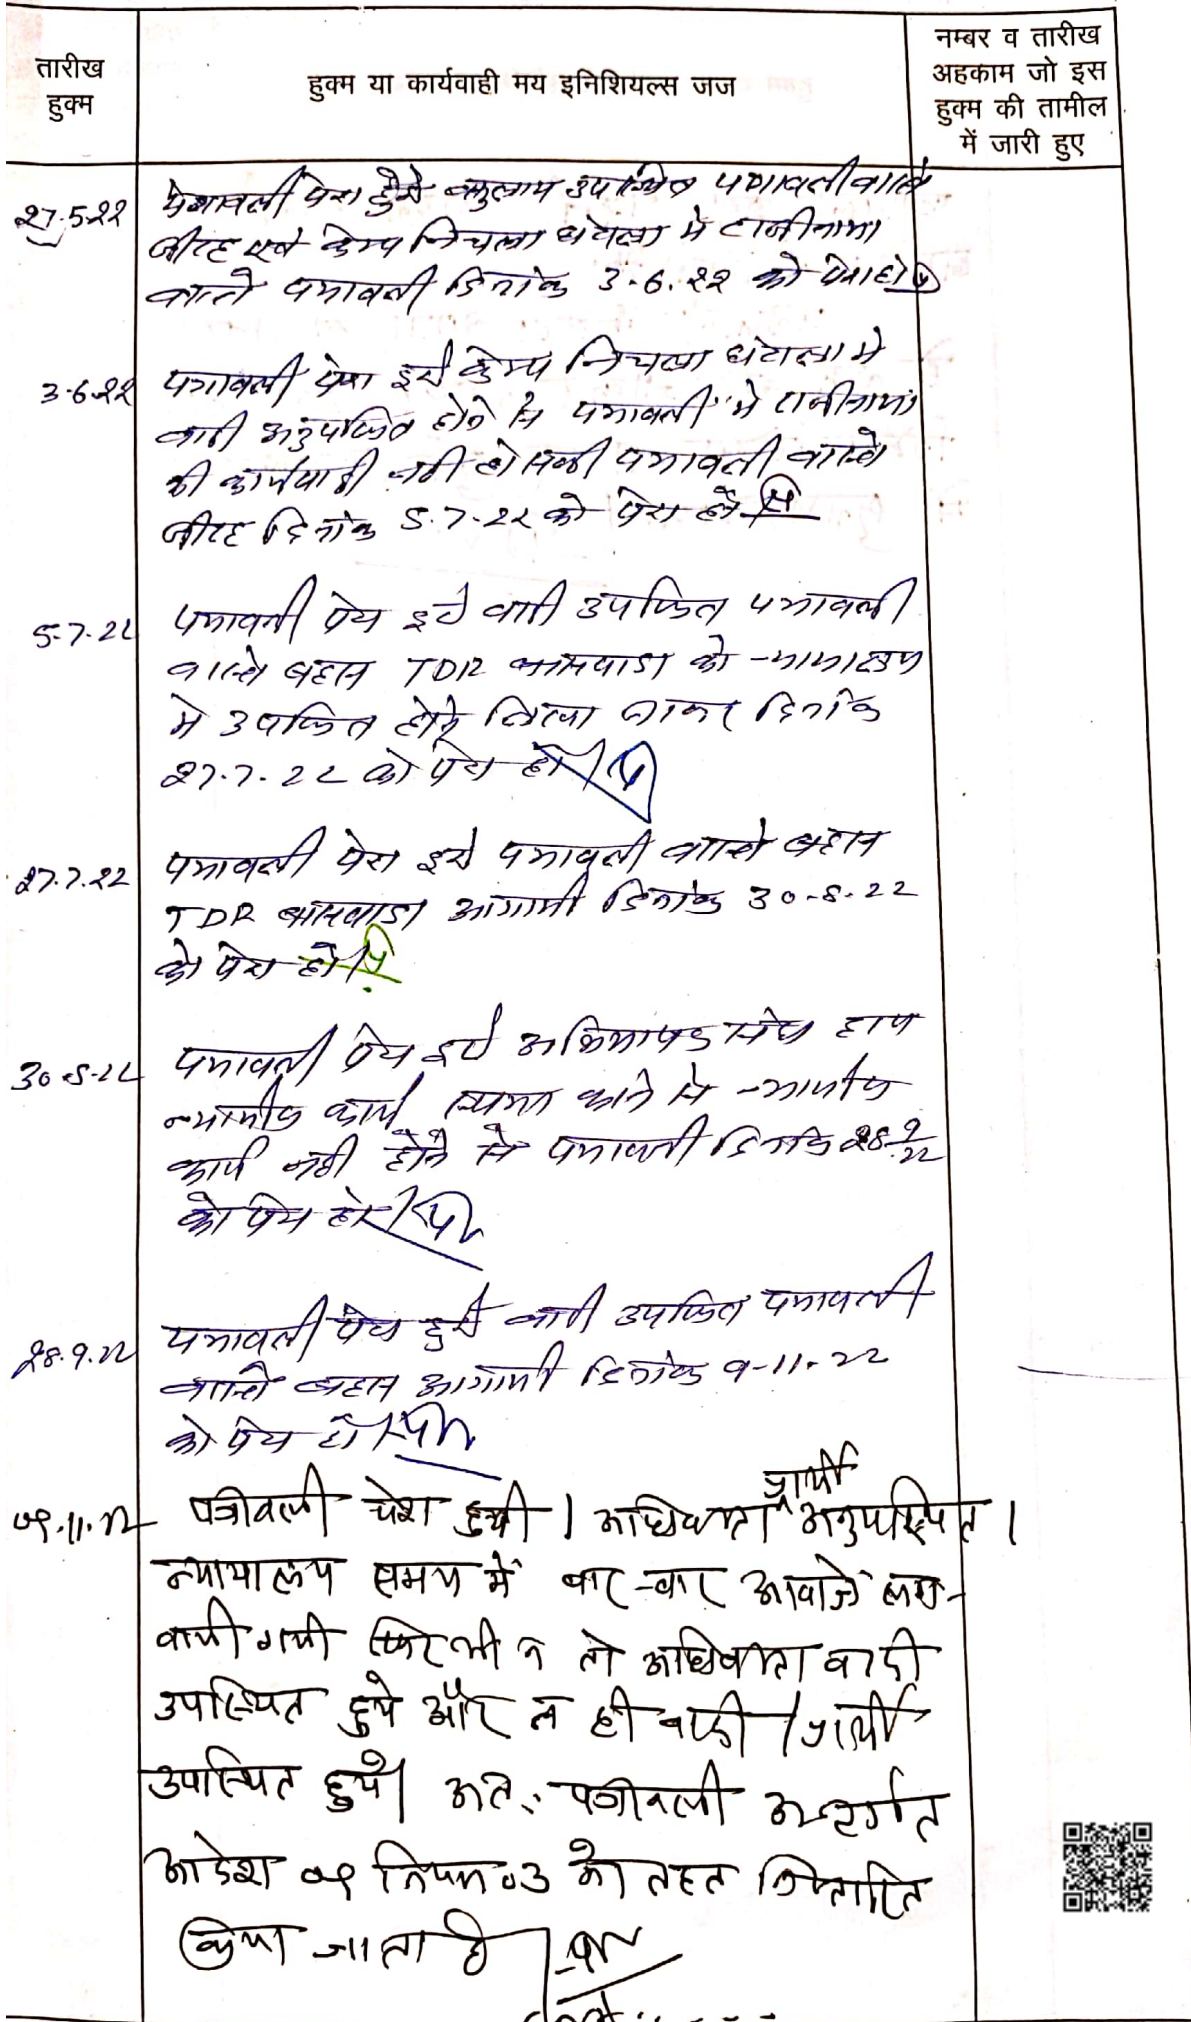 तारीख
हुक्म
हुक्म या कार्यवाही मय इनिशियल्स जज
नम्बर व तारीख
अहकाम जो इस
हुक्म की तामील
में जारी हुए
27.5.22
पत्रावली पेश हुई उपस्थित पत्रावली वास्ते
कैम्प निचला घंटाला में राजीनामा
वास्ते पत्रावली दिनांक 3.6.22 को पेश हो
3.6.22
पत्रावली पेश हुई कैम्प निचला घंटाला में
वादी अनुपस्थित होने से पत्रावली में राजीनामा
की कार्यवाही नहीं हो सकी पत्रावली वास्ते
दिनांक 5.7.22 को पेश हो
5.7.22
पत्रावली पेश हुई वादी उपस्थित पत्रावली
वास्ते बहस TDR बांसवाडा को न्यायालय
में उपस्थित होने लिखा जाकर दिनांक
27.7.22 को पेश हो
27.7.22
पत्रावली पेश हुई पत्रावली वास्ते बहस
TDR बांसवाडा आगामी दिनांक 30-8-22
को पेश हो
30-8-22
पत्रावली पेश हुई अभिभाषक संघ द्वारा
न्यायीक कार्य स्थगन करने से न्यायीक
कार्य नहीं होने से पत्रावली दिनांक 28.9.22
को पेश हो
28.9.22
पत्रावली पेश हुई वादी उपस्थित पत्रावली
वास्ते बहस आगामी दिनांक 9-11-22
को पेश हो
09.11.22
पत्रावली पेश हुयी । अधिवक्ता प्रार्थी अनुपस्थित ।
न्यायालय समय में बार-बार आवाजें लग-
वायी गयी फिर भी न तो अधिवक्ता वादी
उपस्थित हुये और न ही वादी / प्रार्थी
उपस्थित हुये। अतः पत्रावली अन्तर्गत
आदेश 09 नियम 03 के तहत निस्तारित
किया जाता है।